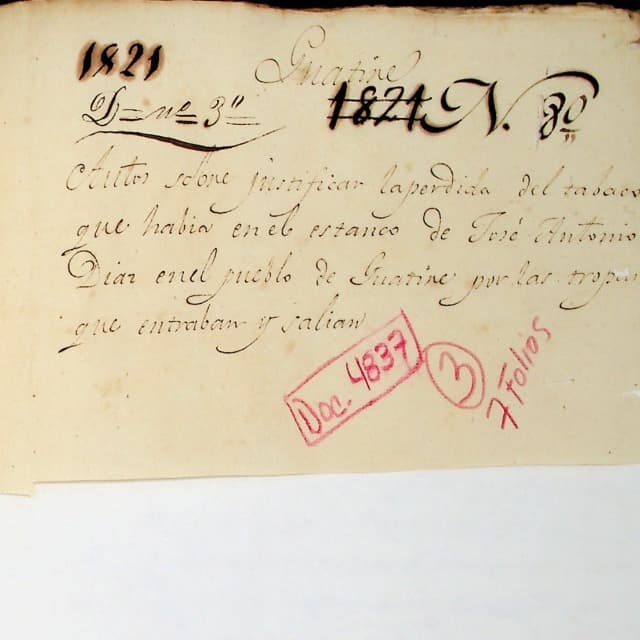 1821
Guatire
D= nº 3"
1821 N. 3º
Autos sobre justificar la perdida del tabaco
que habia en el estanco de José Antonio
Diaz en el pueblo de Guatire por las tropas
que entraban y salian
Doc. 4837
3
7 Folios